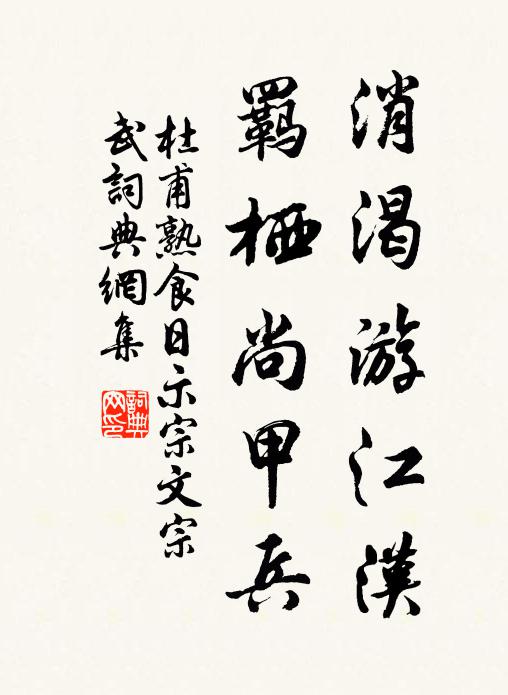 消渴游江漢
羈栖尚甲兵
杜甫熟食日示宗文宗
武詞典網集
詞典
网印